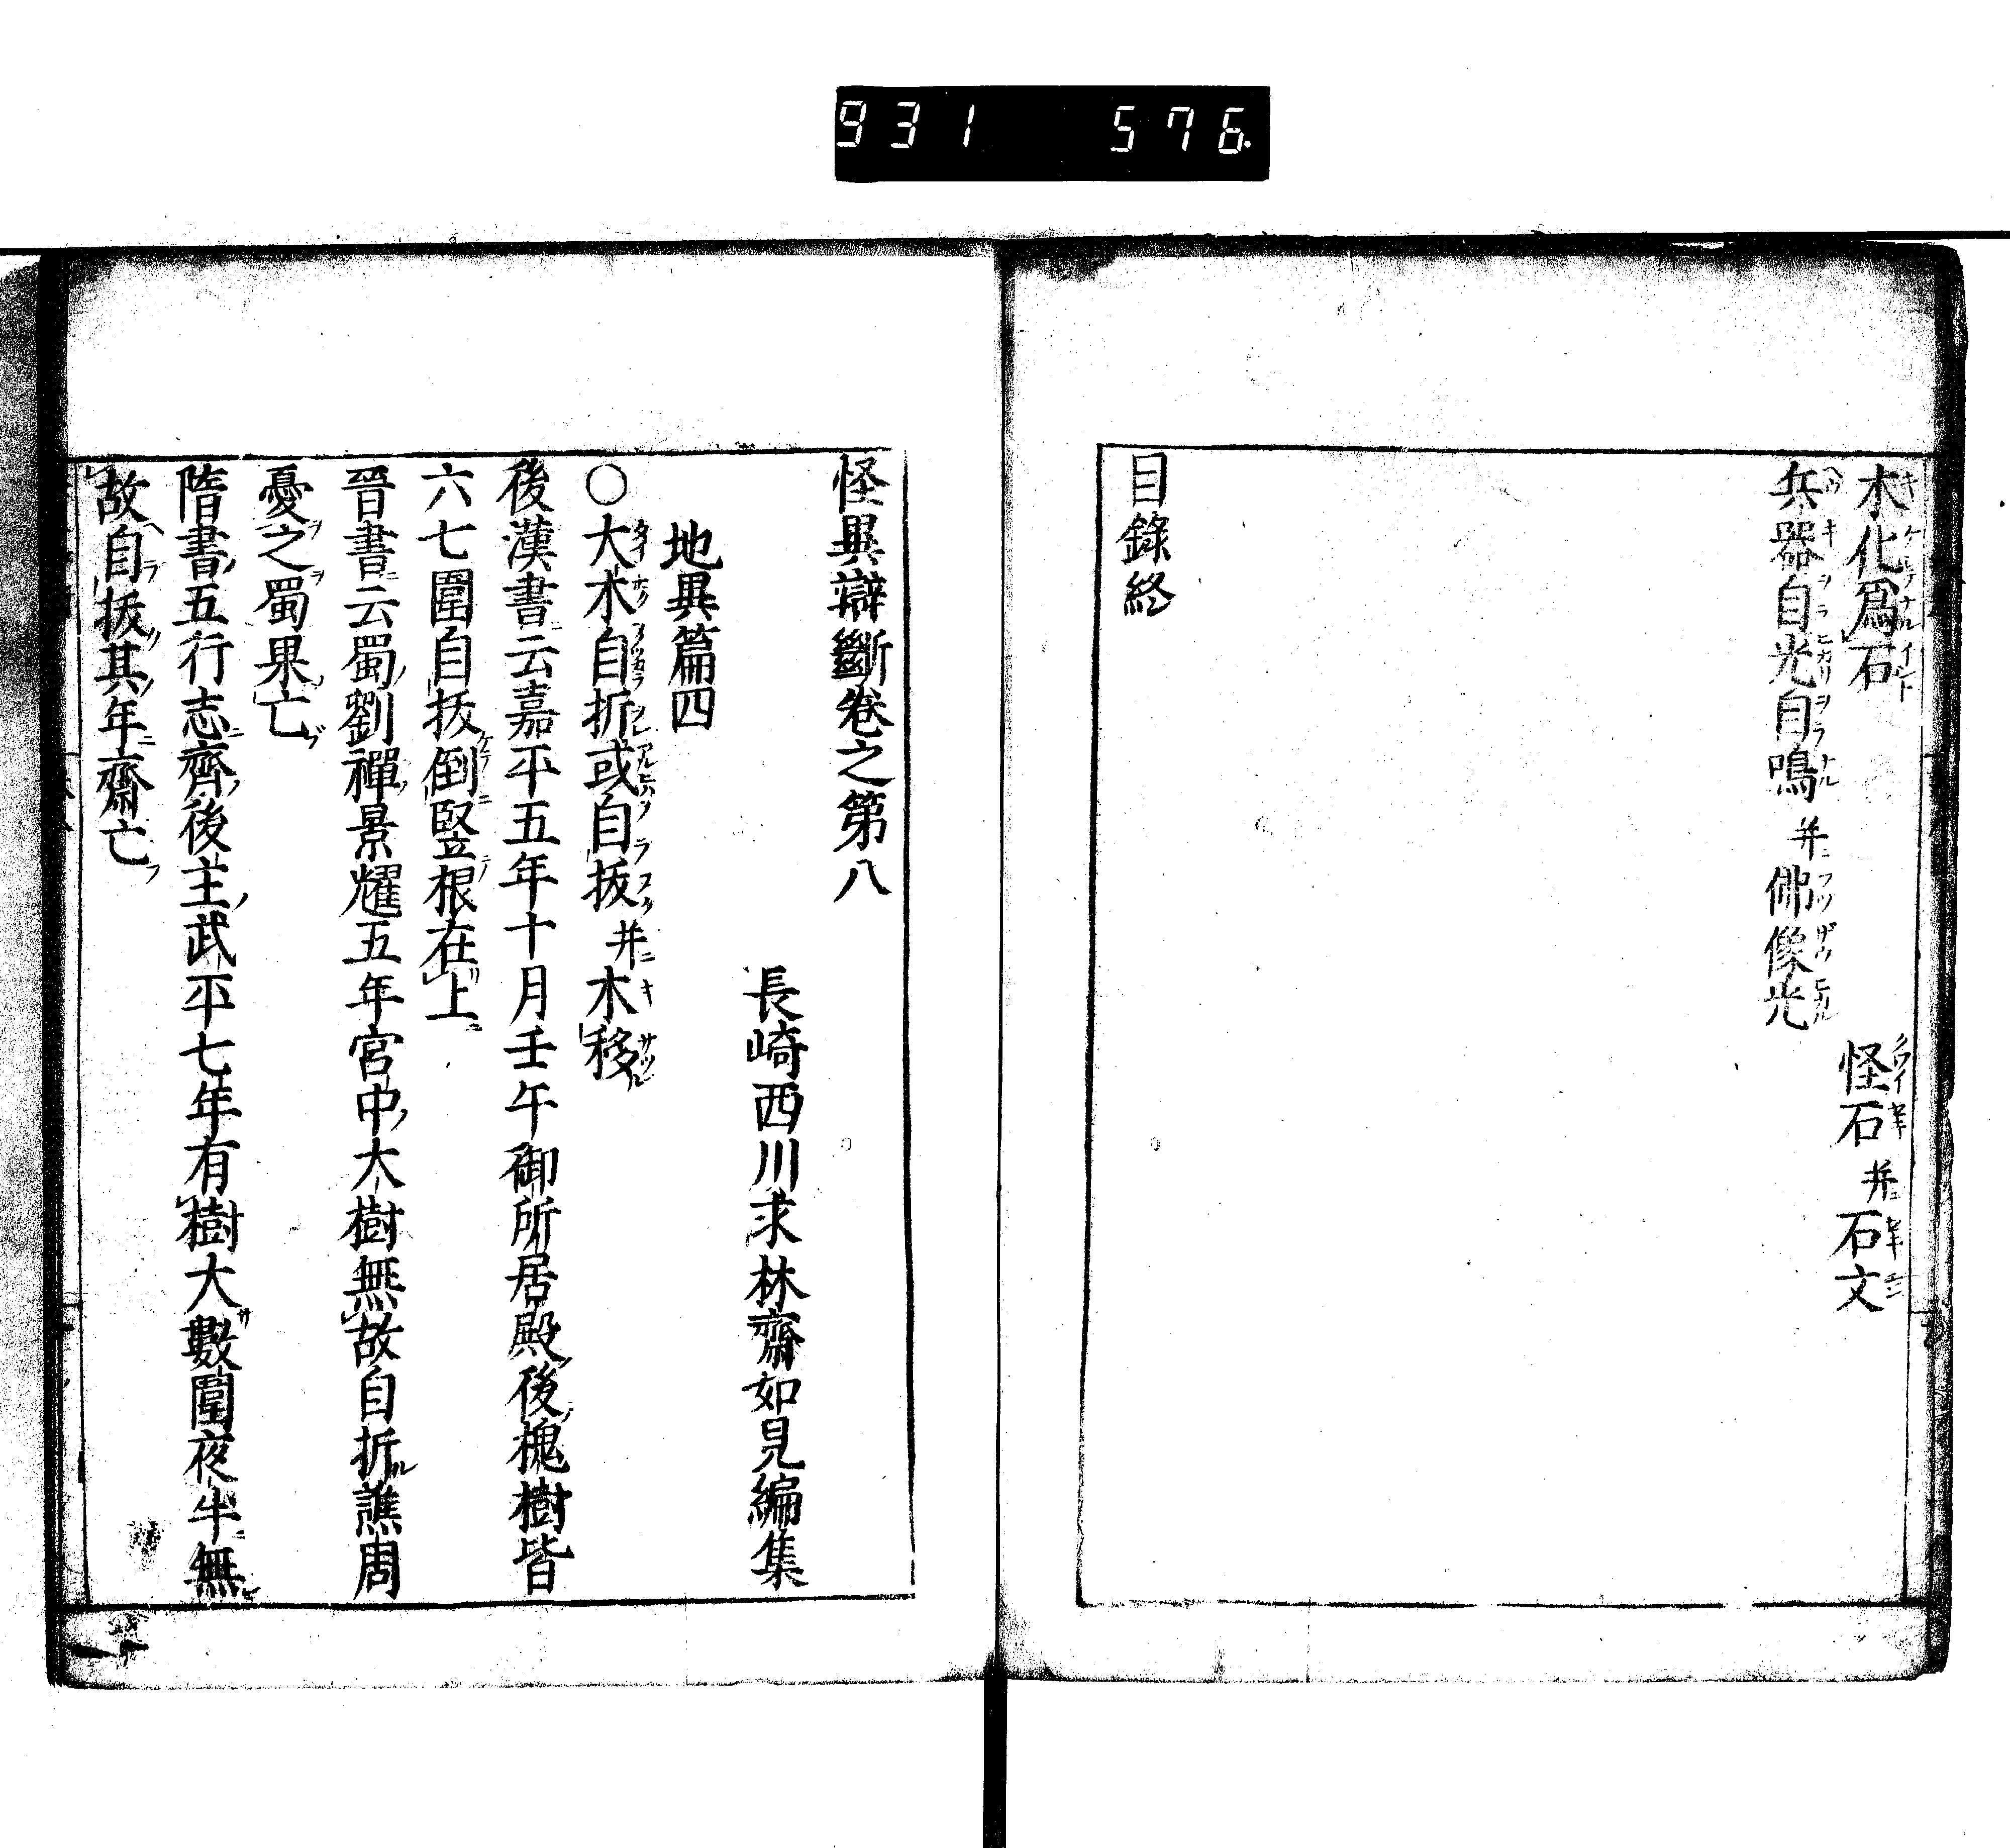 931 576
木化爲石 怪石并石文
兵器自光自鳴并佛像光
目錄終
怪異辯斷卷之第八
長崎西川求林齋如見編集
地異篇四
○大木自折或自拔并木移
後漢書云嘉平五年十月壬午御所居殿後槐樹皆
六七圍自拔倒竪根在上
晉書云蜀劉禪景耀五年宮中大樹無故自折譙周
憂之蜀果亡
隋書五行志齊後主武平七年有樹大數圍夜半無
故自拔其年齋亡